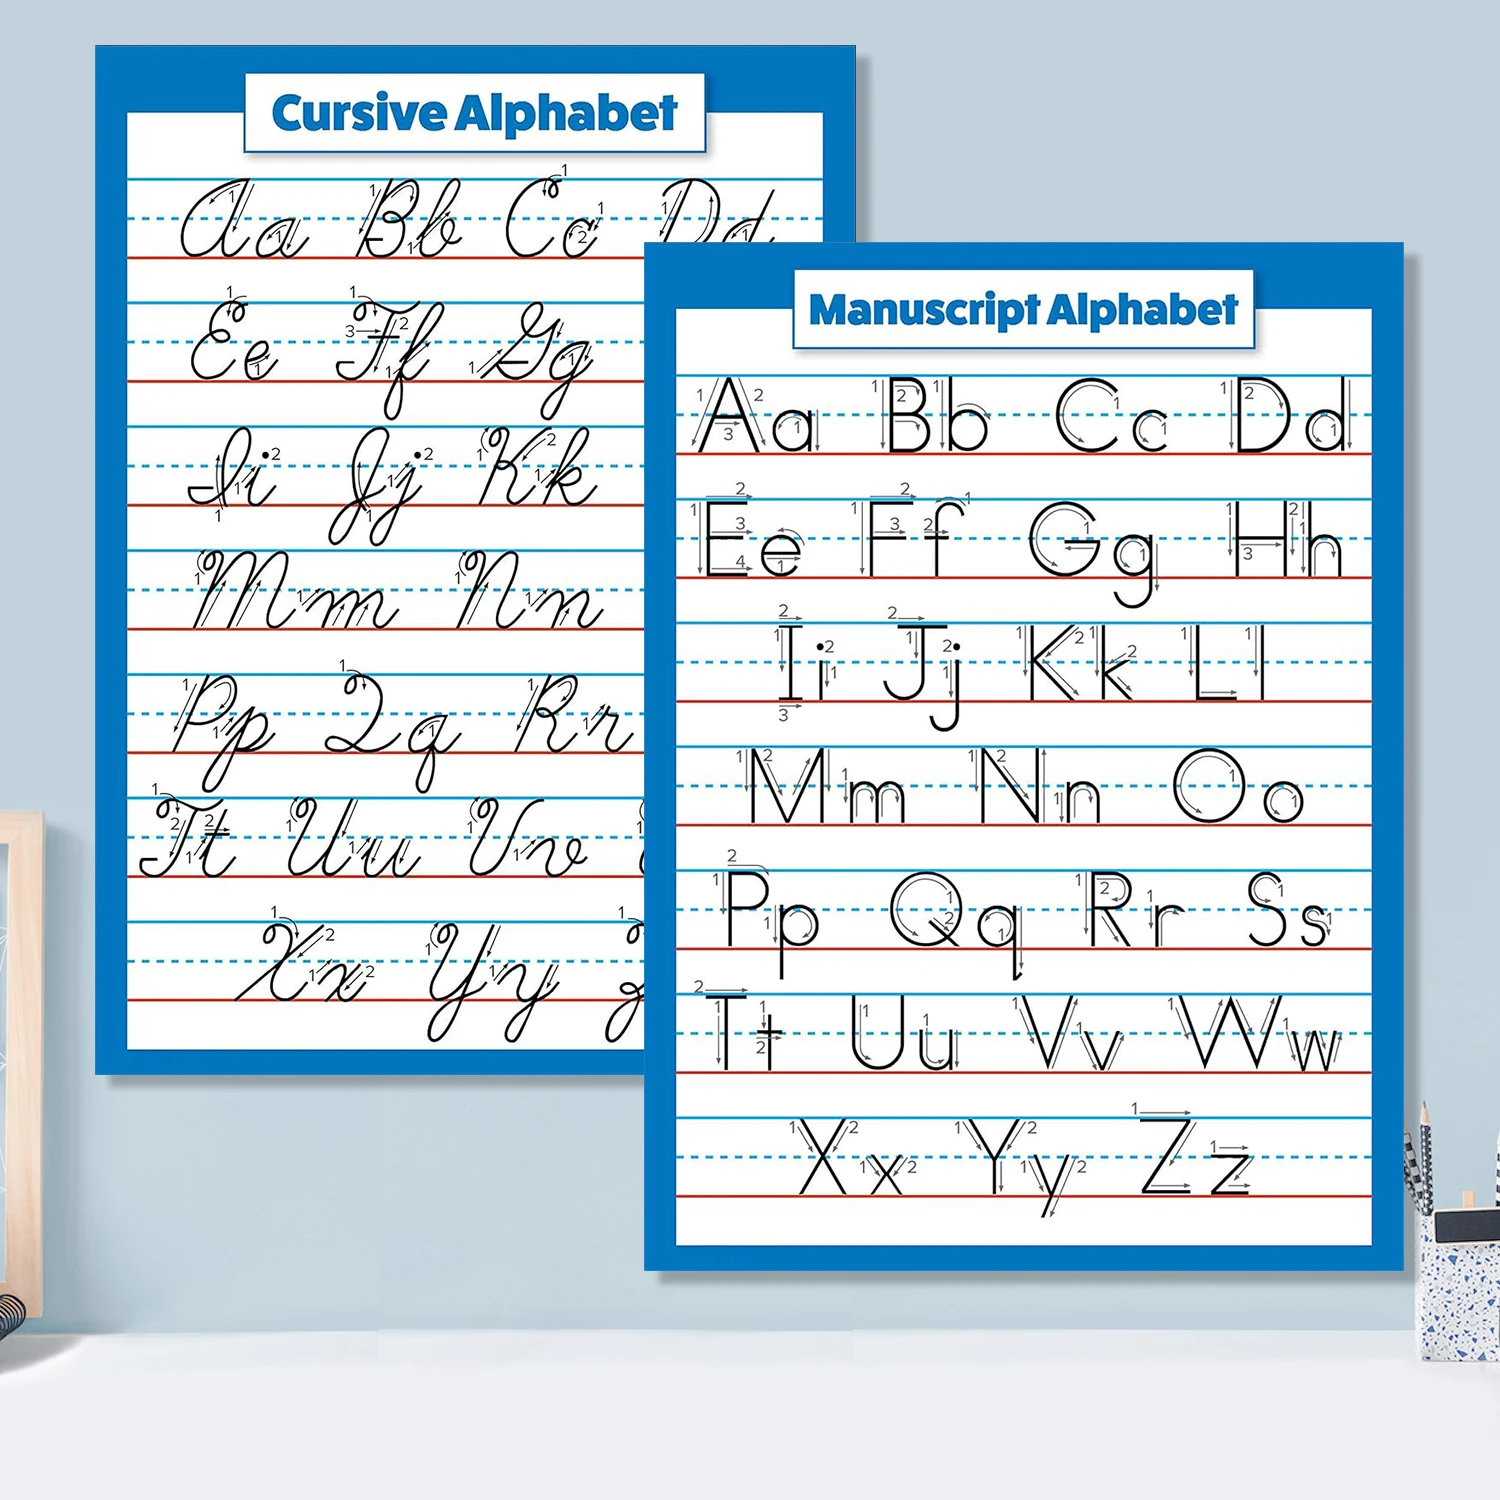 Cursive Alphabet
Aa Bb Cc Dd
Ee Ff Gg
Ii Jj Kk
Mm Nn
Pp Qq Rr
Tt Uu Vv
Xx Yy
Manuscript Alphabet
Aa Bb Cc Dd
Ee Ff Gg Hh
Ii Jj Kk Ll
Mm Nn Oo
Pp Qq Rr Ss
Tt Uu Vv Ww
Xx Yy Zz